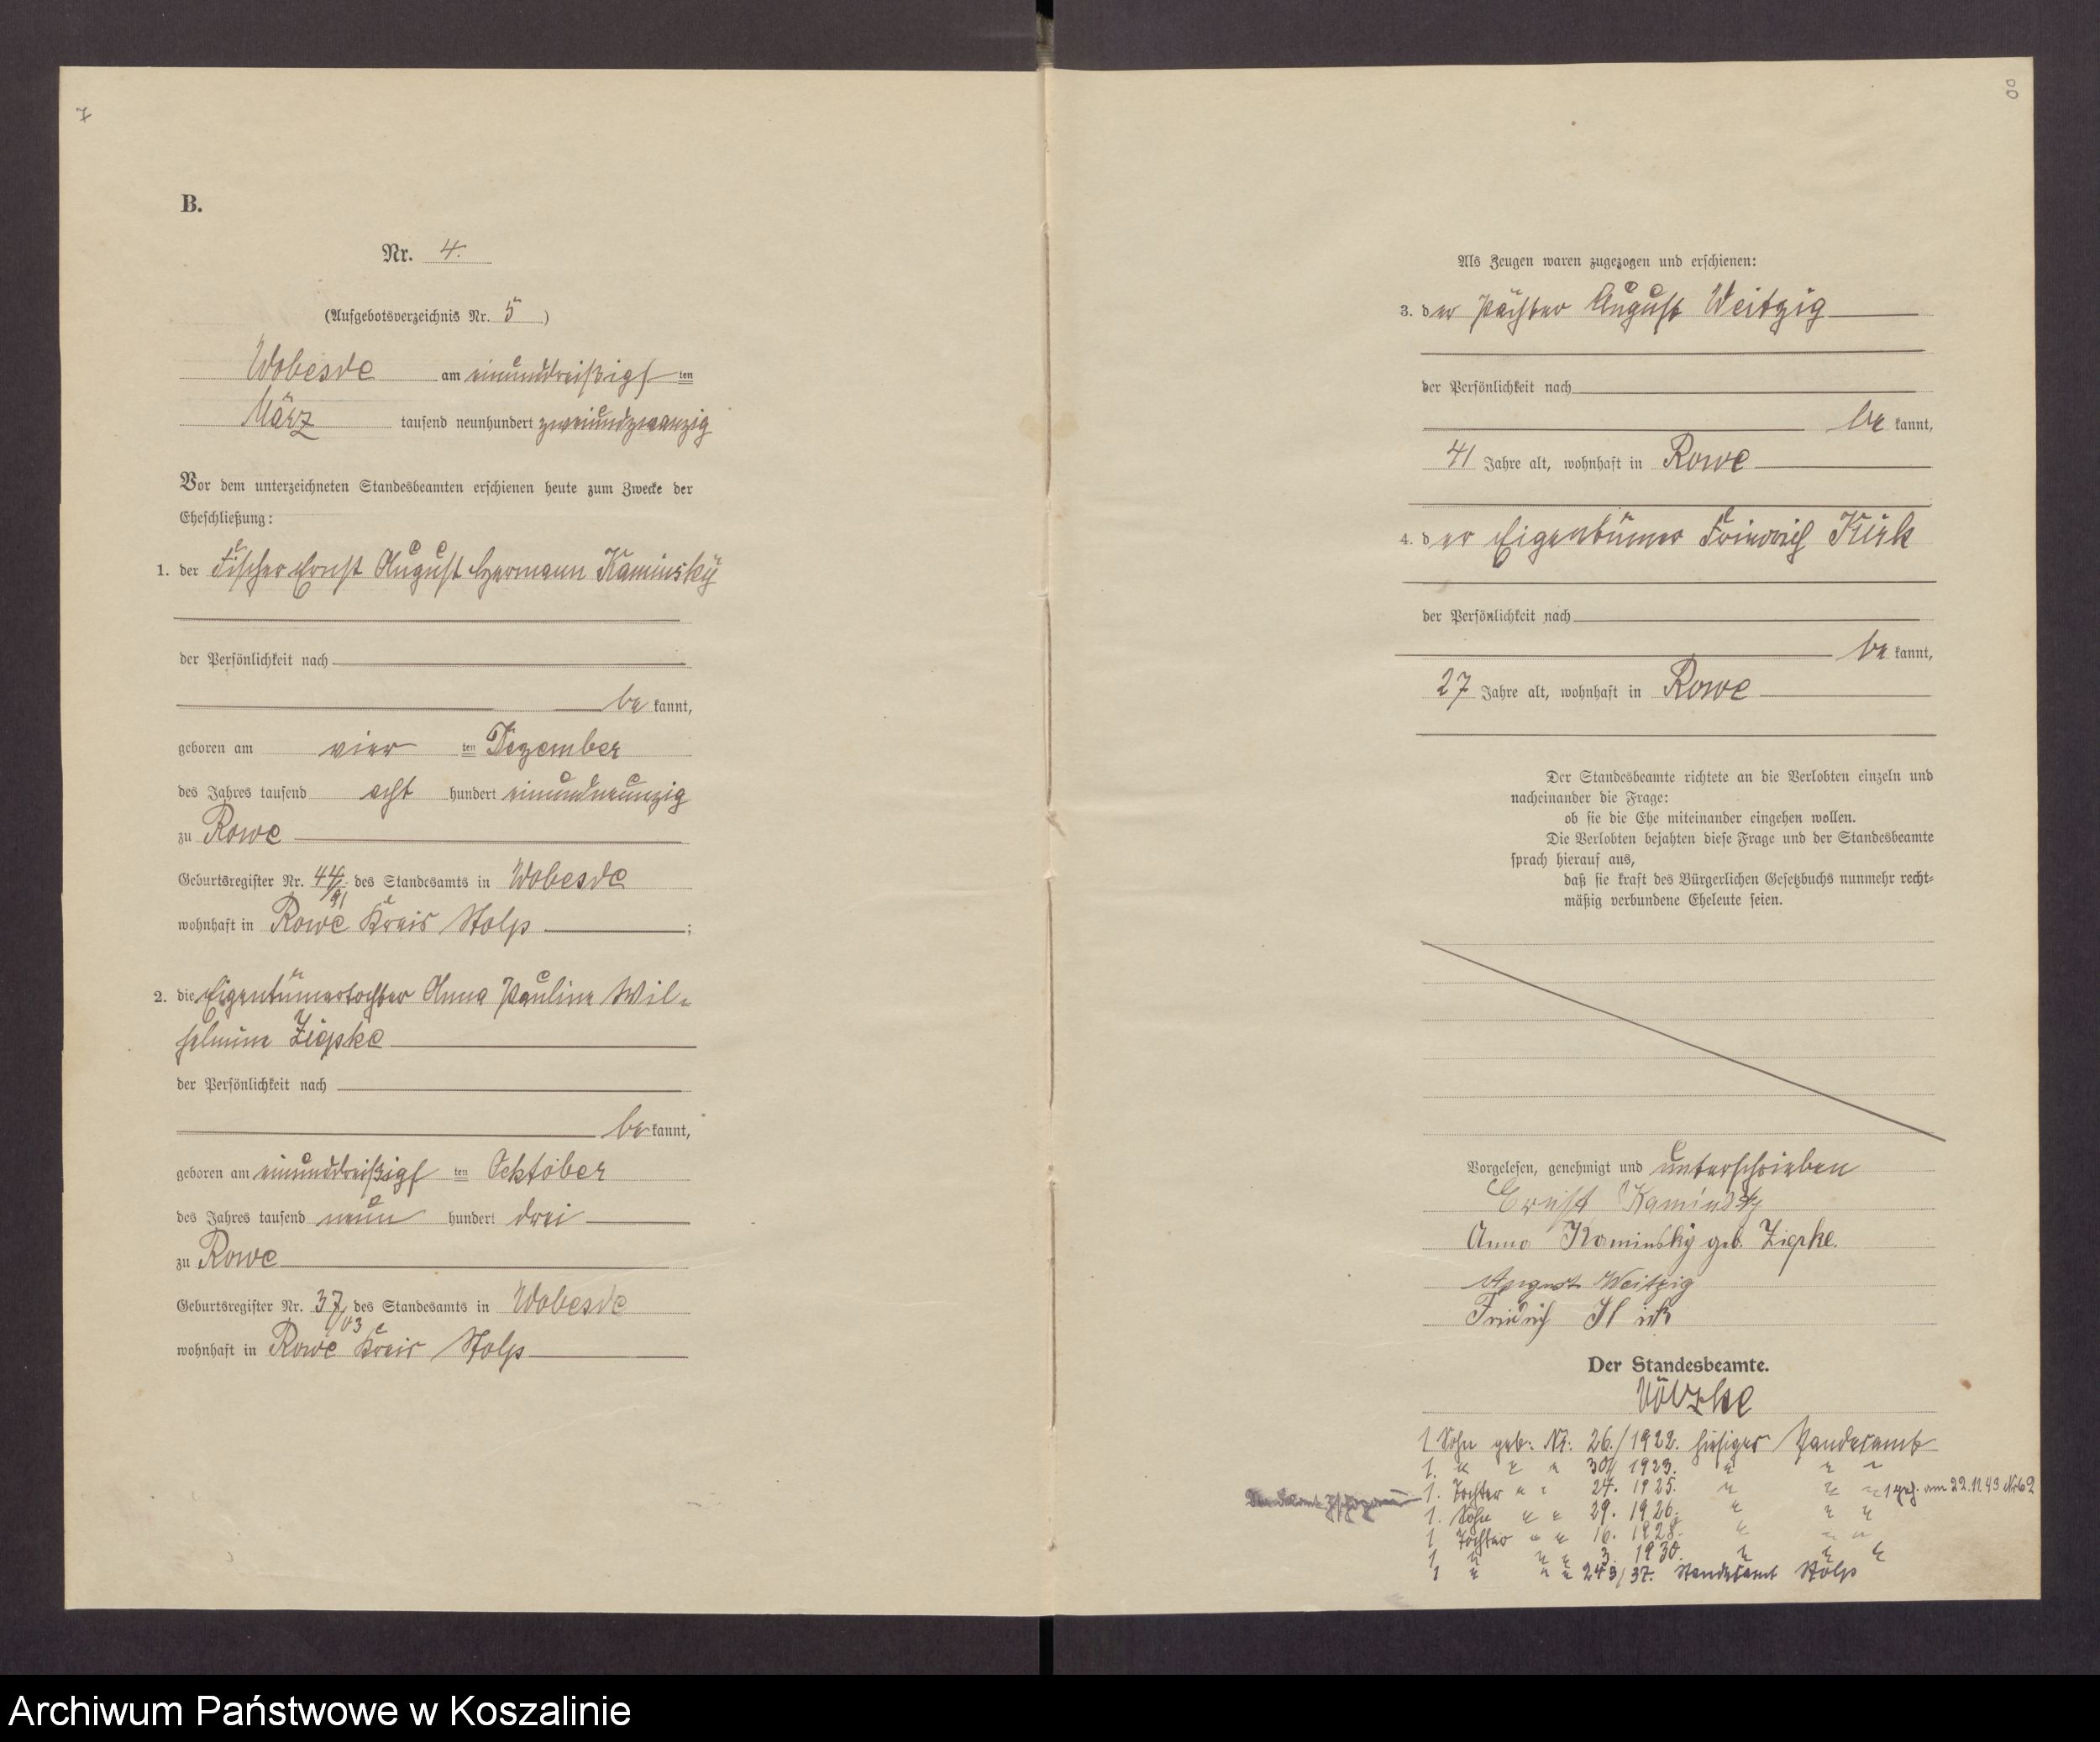 7
B.
Nr. 4.
(Aufgebotsverzeichnis Nr. 5)
Wobesde am einunddreißigsten
März tausend neunhundert zweiundzwanzig
Vor dem unterzeichneten Standesbeamten erschienen heute zum Zwecke der
Eheschließung:
1. der Fischer Ernst August Hermann Kaminsky
der Persönlichkeit nach
bekannt,
geboren am vierten Dezember
des Jahres tausend acht hundert einundneunzig
zu Rowe
Geburtsregister Nr. 44/91 des Standesamts in Wobesde
wohnhaft in Rowe Kreis Stolp ;
2. die Eigentümertochter Anna Pauline Wil-
helmine Ziepke
der Persönlichkeit nach
bekannt,
geboren am einunddreißigsten Oktober
des Jahres tausend neun hundert drei
zu Rowe
Geburtsregister Nr. 37/03 des Standesamts in Wobesde
wohnhaft in Rowe Kreis Stolp
8
Als Zeugen waren zugezogen und erschienen:
3. der Pächter August Weitzig
der Persönlichkeit nach
bekannt,
41 Jahre alt, wohnhaft in Rowe
4. der Eigentümer Friedrich Kirk
der Persönlichkeit nach
bekannt,
27 Jahre alt, wohnhaft in Rowe
Der Standesbeamte richtete an die Verlobten einzeln und
nacheinander die Frage:
ob sie die Ehe miteinander eingehen wollen.
Die Verlobten bejahten diese Frage und der Standesbeamte
sprach hierauf aus,
daß sie kraft des Bürgerlichen Gesetzbuchs nunmehr recht-
mäßig verbundene Eheleute seien.
Vorgelesen, genehmigt und unterschrieben
Ernst Kaminsky
Anna Kaminsky geb. Ziepke.
August Weitzig
Friedrich Kirk
Der Standesbeamte.
1 Sohn geb. Nr. 26./1922. hiesiges Standesamt
1. " " " 30/1923. " " "
1. Tochter " " 24. 1925. " " " 1 geh. am 22.11.43 Nr 62
1. Sohn " " 29. 1926. " " "
1 Tochter " " 16. 1928. " " "
1 " " " 3. 1930. " " "
1 " " " 243/37. Standesamt Stolp
Archiwum Państwowe w Koszalinie